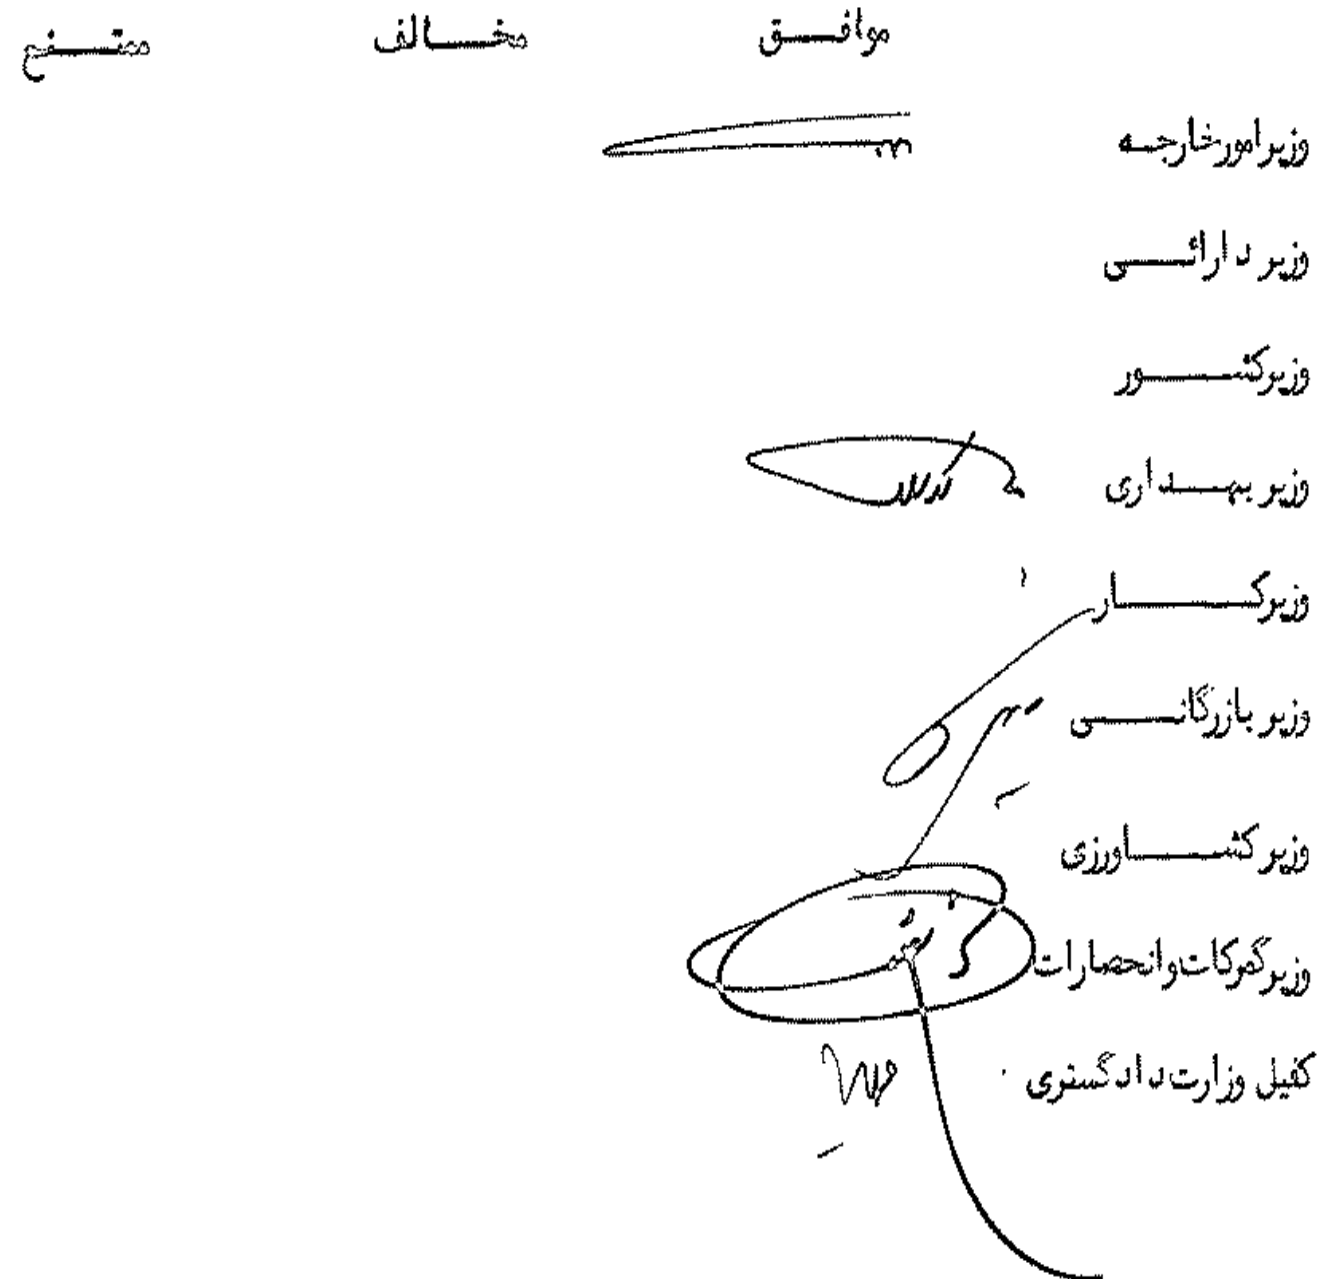 موافق مخالف ممتنع
وزیر امورخارجه
وزیر دارائی
وزیرکشور
وزیر بهداری
وزیرکار
وزیر بازرگانی
وزیر کشاورزی
وزیرگمرکات وانحصارات
کفیل وزارت دادگستری